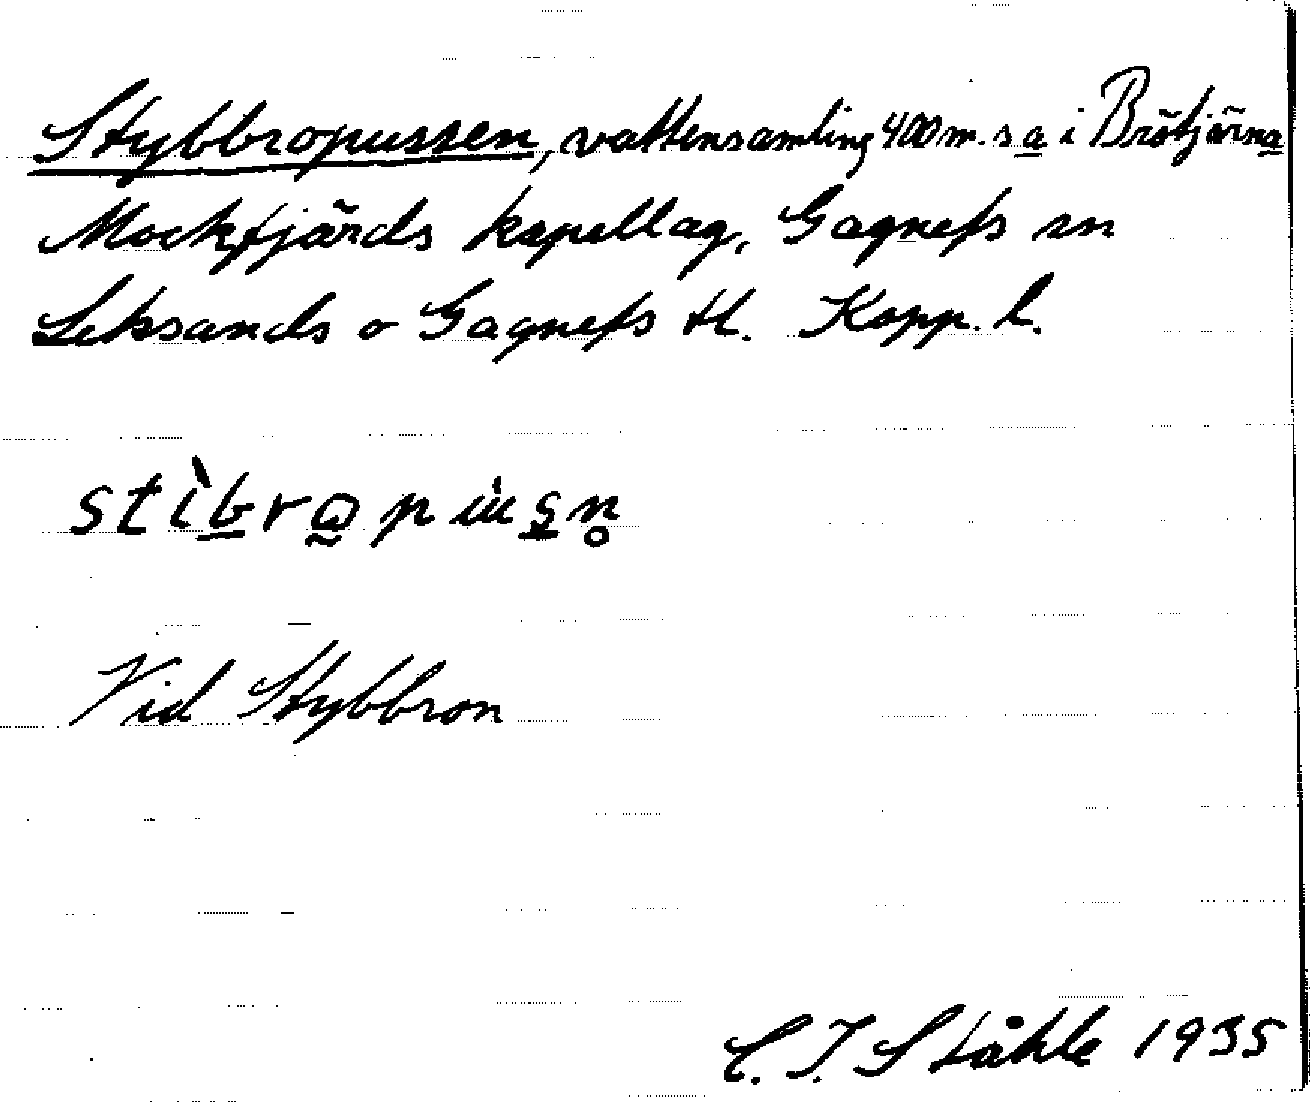 Stybbropussen, vattensamling 400 m. s a i Brötjärna
Mockfjärds kapellag, Gagnefs sn
Leksands o Gagnefs tl. Kopp. l.
stìbrap
Vid Stybbron
C. I. Ståhle 1935